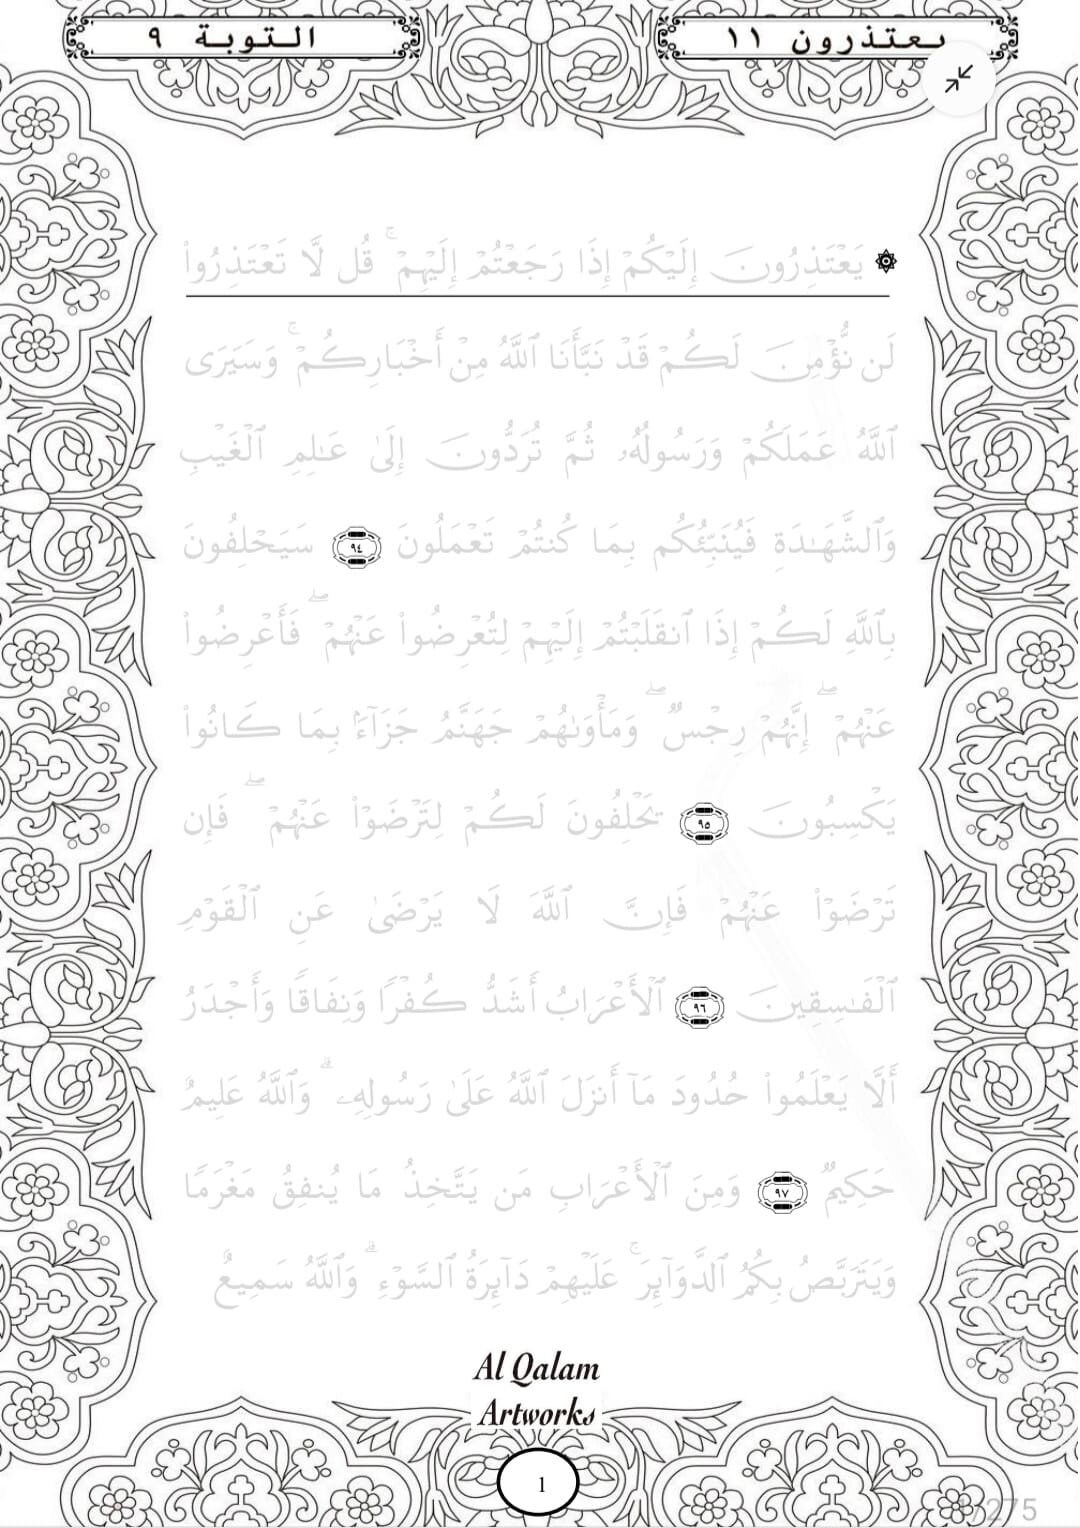 يعتذرون ١١
التوبة ٩
۞ يَعْتَذِرُونَ إِلَيْكُمْ إِذَا رَجَعْتُمْ إِلَيْهِمْ ۚ قُل لَّا تَعْتَذِرُوا۟
لَن نُّؤْمِنَ لَكُمْ قَدْ نَبَّأَنَا ٱللَّهُ مِنْ أَخْبَارِكُمْ ۚ وَسَيَرَى
ٱللَّهُ عَمَلَكُمْ وَرَسُولُهُۥ ثُمَّ تُرَدُّونَ إِلَىٰ عَـٰلِمِ ٱلْغَيْبِ
وَٱلشَّهَـٰدَةِ فَيُنَبِّئُكُم بِمَا كُنتُمْ تَعْمَلُونَ ٩٤ سَيَحْلِفُونَ
بِٱللَّهِ لَكُمْ إِذَا ٱنقَلَبْتُمْ إِلَيْهِمْ لِتُعْرِضُوا۟ عَنْهُمْ ۖ فَأَعْرِضُوا۟
عَنْهُمْ ۖ إِنَّهُمْ رِجْسٌ ۖ وَمَأْوَىٰهُمْ جَهَنَّمُ جَزَآءًۢ بِمَا كَانُوا۟
يَكْسِبُونَ ٩٥ يَحْلِفُونَ لَكُمْ لِتَرْضَوْا۟ عَنْهُمْ ۖ فَإِن
تَرْضَوْا۟ عَنْهُمْ فَإِنَّ ٱللَّهَ لَا يَرْضَىٰ عَنِ ٱلْقَوْمِ
ٱلْفَـٰسِقِينَ ٩٦ ٱلْأَعْرَابُ أَشَدُّ كُفْرًا وَنِفَاقًا وَأَجْدَرُ
أَلَّا يَعْلَمُوا۟ حُدُودَ مَآ أَنزَلَ ٱللَّهُ عَلَىٰ رَسُولِهِۦ ۗ وَٱللَّهُ عَلِيمٌ
حَكِيمٌ ٩٧ وَمِنَ ٱلْأَعْرَابِ مَن يَتَّخِذُ مَا يُنفِقُ مَغْرَمًا
وَيَتَرَبَّصُ بِكُمُ ٱلدَّوَآئِرَ ۚ عَلَيْهِمْ دَآئِرَةُ ٱلسَّوْءِ ۗ وَٱللَّهُ سَمِيعٌ
Al Qalam
Artworks
1
1/275